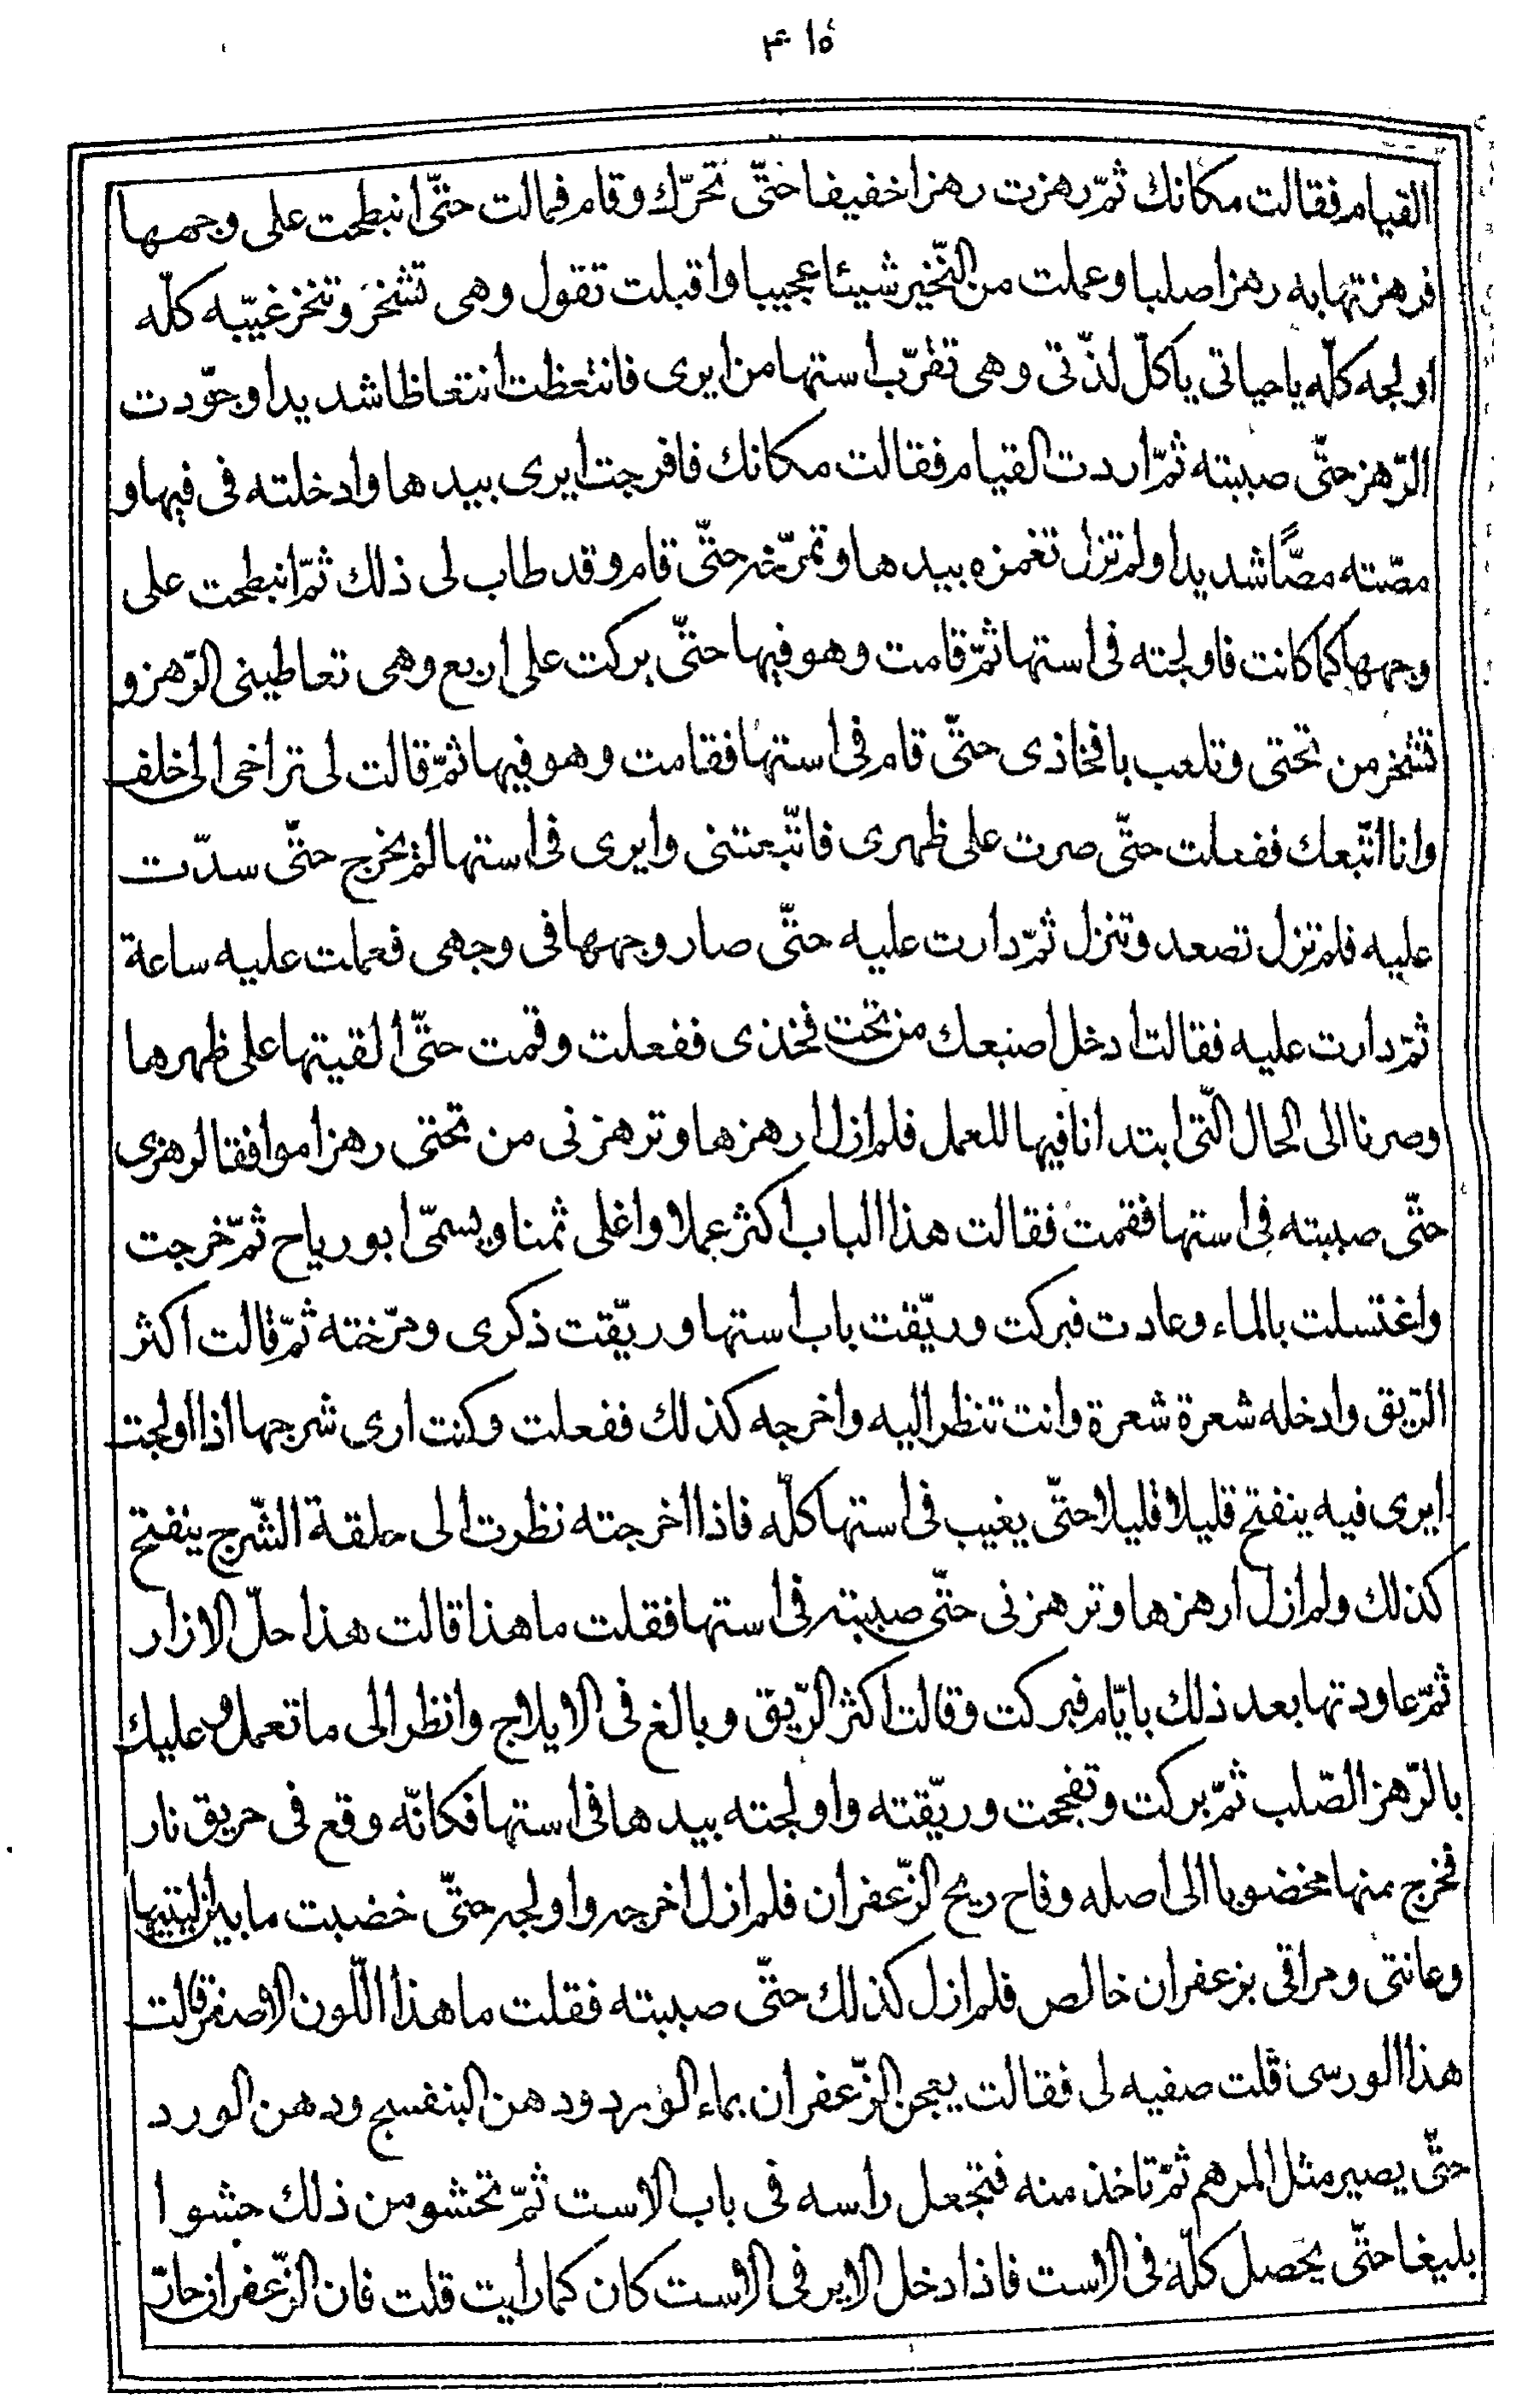 ٤١٥
القيام فقالت مكانك ثمّ رهزت رهزا خفيفا حتّى تحرّك وقام فمالت حتّى انبطحت على وجهها
فرهزتها به رهزا صلبا وعملت من النّخير شيئا عجيبا واقبلت تقول وهى تشخر وتنخر غيّبه كلّه
اولجه كلّه يا حياتى يا كلّ لذّتى وهى تقرّب استها من ايرى فانتعظت انتعاظا شديدا وجوّدت
الرّهز حتّى صببته ثمّ اردت القيام فقالت مكانك فافرجت ايرى بيدها وادخلته فى فيها و
مصّته مصًّا شديدا ولم تزل تغمزه بيدها وتمرّخه حتّى قام وقد طاب لى ذلك ثمّ انبطحت على
وجهها كما كانت فاولجته فى استها ثمّ قامت وهو فيها حتّى بركت على اربع وهى تعاطينى الرّهز و
تشخر من تحتى وتلعب بافخاذى حتّى قام فى استها فقامت وهو فيها ثمّ قالت لى تراخى الى خلف
وانا اتّبعك ففعلت حتّى صرت على ظهرى فاتّبعتنى وايرى فى استها لم يخرج حتّى سدّت
عليه فلم تزل تصعد وتنزل ثمّ دارت عليه حتّى صار وجهها فى وجهى فعملت عليه ساعة
ثمّ دارت عليه فقالت ادخل اصبعك من تحت فخذى ففعلت وقمت حتّى القيتها على ظهرها
وصرنا الى الحال الّتى ابتدانا فيها للعمل فلم ازل ارهزها وترهزنى من تحتى رهزا موافقا لرهزى
حتّى صببته فى استها فقمت فقالت هذا الباب اكثر عملا واغلى ثمنا ويسمّى ابو رياح ثمّ خرجت
واغتسلت بالماء وعادت فبركت وريّقت باب استها وريّقت ذكرى ومرّخته ثمّ قالت اكثر
الرّيق وادخله شعرة شعرة وانت تنظر اليه واخرجه كذلك ففعلت وكنت ارى شرجها اذا اولجت
ايرى فيه ينفتح قليلا قليلا حتّى يغيب فى استها كلّه فاذا اخرجته نظرت الى حلقة الشّرج ينفتح
كذلك ولم ازل ارهزها وترهزنى حتّى صببته فى استها فقلت ما هذا قالت هذا حلّ الازار
ثمّ عاودتها بعد ذلك بايّام فبركت وقالت اكثر الرّيق وبالغ فى الايلاج وانظر الى ما تعمل وعليك
بالرّهز الصّلب ثمّ بركت وتفججت وريّقته واولجته بيدها فى استها فكانّه وقع فى حريق نار
فخرج منها مخضوبا الى اصله وفاح ريح الزّعفران فلم ازل اخرجه واولجه حتّى خضبت ما بين اليتيها
وعانتى ومراقى بزعفران خالص فلم ازل كذلك حتّى صببته فقلت ما هذا اللّون الاصفر قالت
هذا الورسى قلت صفيه لى فقالت يعجن الزّعفران بماء الورد ودهن البنفسج ودهن الورد
حتّى يصير مثل المرهم ثمّ تاخذ منه فتجعل راسه فى باب الاست ثمّ تحشو من ذلك حشوا
بليغا حتّى يحصل كلّه فى الاست فاذا دخل الاير فى الاست كان كما رايت قلت فان الزّعفران حارّ